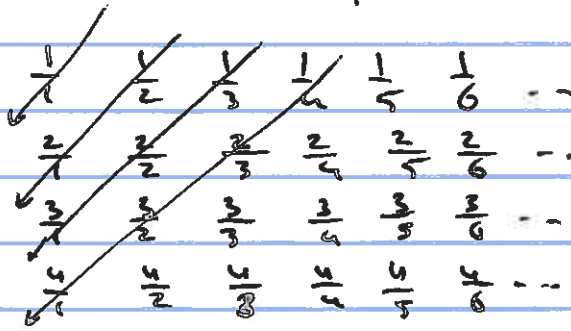 1/1 1/2 1/3 1/4 1/5 1/6 ...
2/1 2/2 2/3 2/4 2/5 2/6 ...
3/1 3/2 3/3 3/4 3/5 3/6 ...
4/1 4/2 4/3 4/4 4/5 4/6 ...